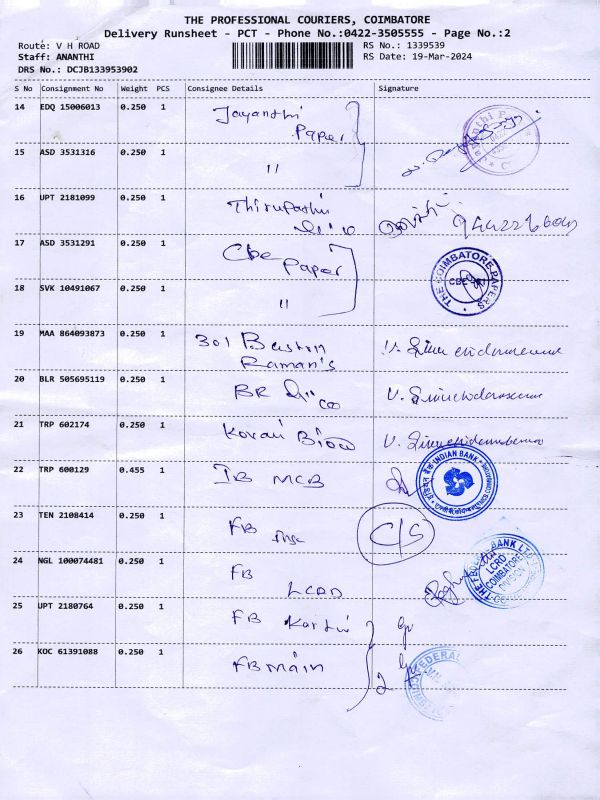 THE PROFESSIONAL COURIERS, COIMBATORE
Delivery Runsheet - PCT - Phone No.:0422-3505555 - Page No.:2
Route: V H ROAD
RS No.: 1339539
Staff: ANANTHI
RS Date: 19-Mar-2024
DRS No.: DCJB133953902
S No Consignment No Weight PCS Consignee Details Signature
14 EDQ 15006013 0.250 1 Jayanthi
Paper
15 ASD 3531316 0.250 1 "
16 UPT 2181099 0.250 1 Thirupathi
17 ASD 3531291 0.250 1 Cbe Paper
THE COIMBATORE PAPERS
18 SVK 10491067 0.250 1 "
19 MAA 864093873 0.250 1 301
Raman's
20 BLR 505695119 0.250 1 BR
21 TRP 602174 0.250 1 Kovai
22 TRP 600129 0.455 1 IB MCB
INDIAN BANK
23 TEN 2108414 0.250 1 FB
C/S
24 NGL 100074481 0.250 1 FB
LCRD
THE FEDERAL BANK LTD
LCRD
COIMBATORE
DIVISION
25 UPT 2180764 0.250 1 FB
26 KOC 61391088 0.250 1 FB Main
FEDERAL